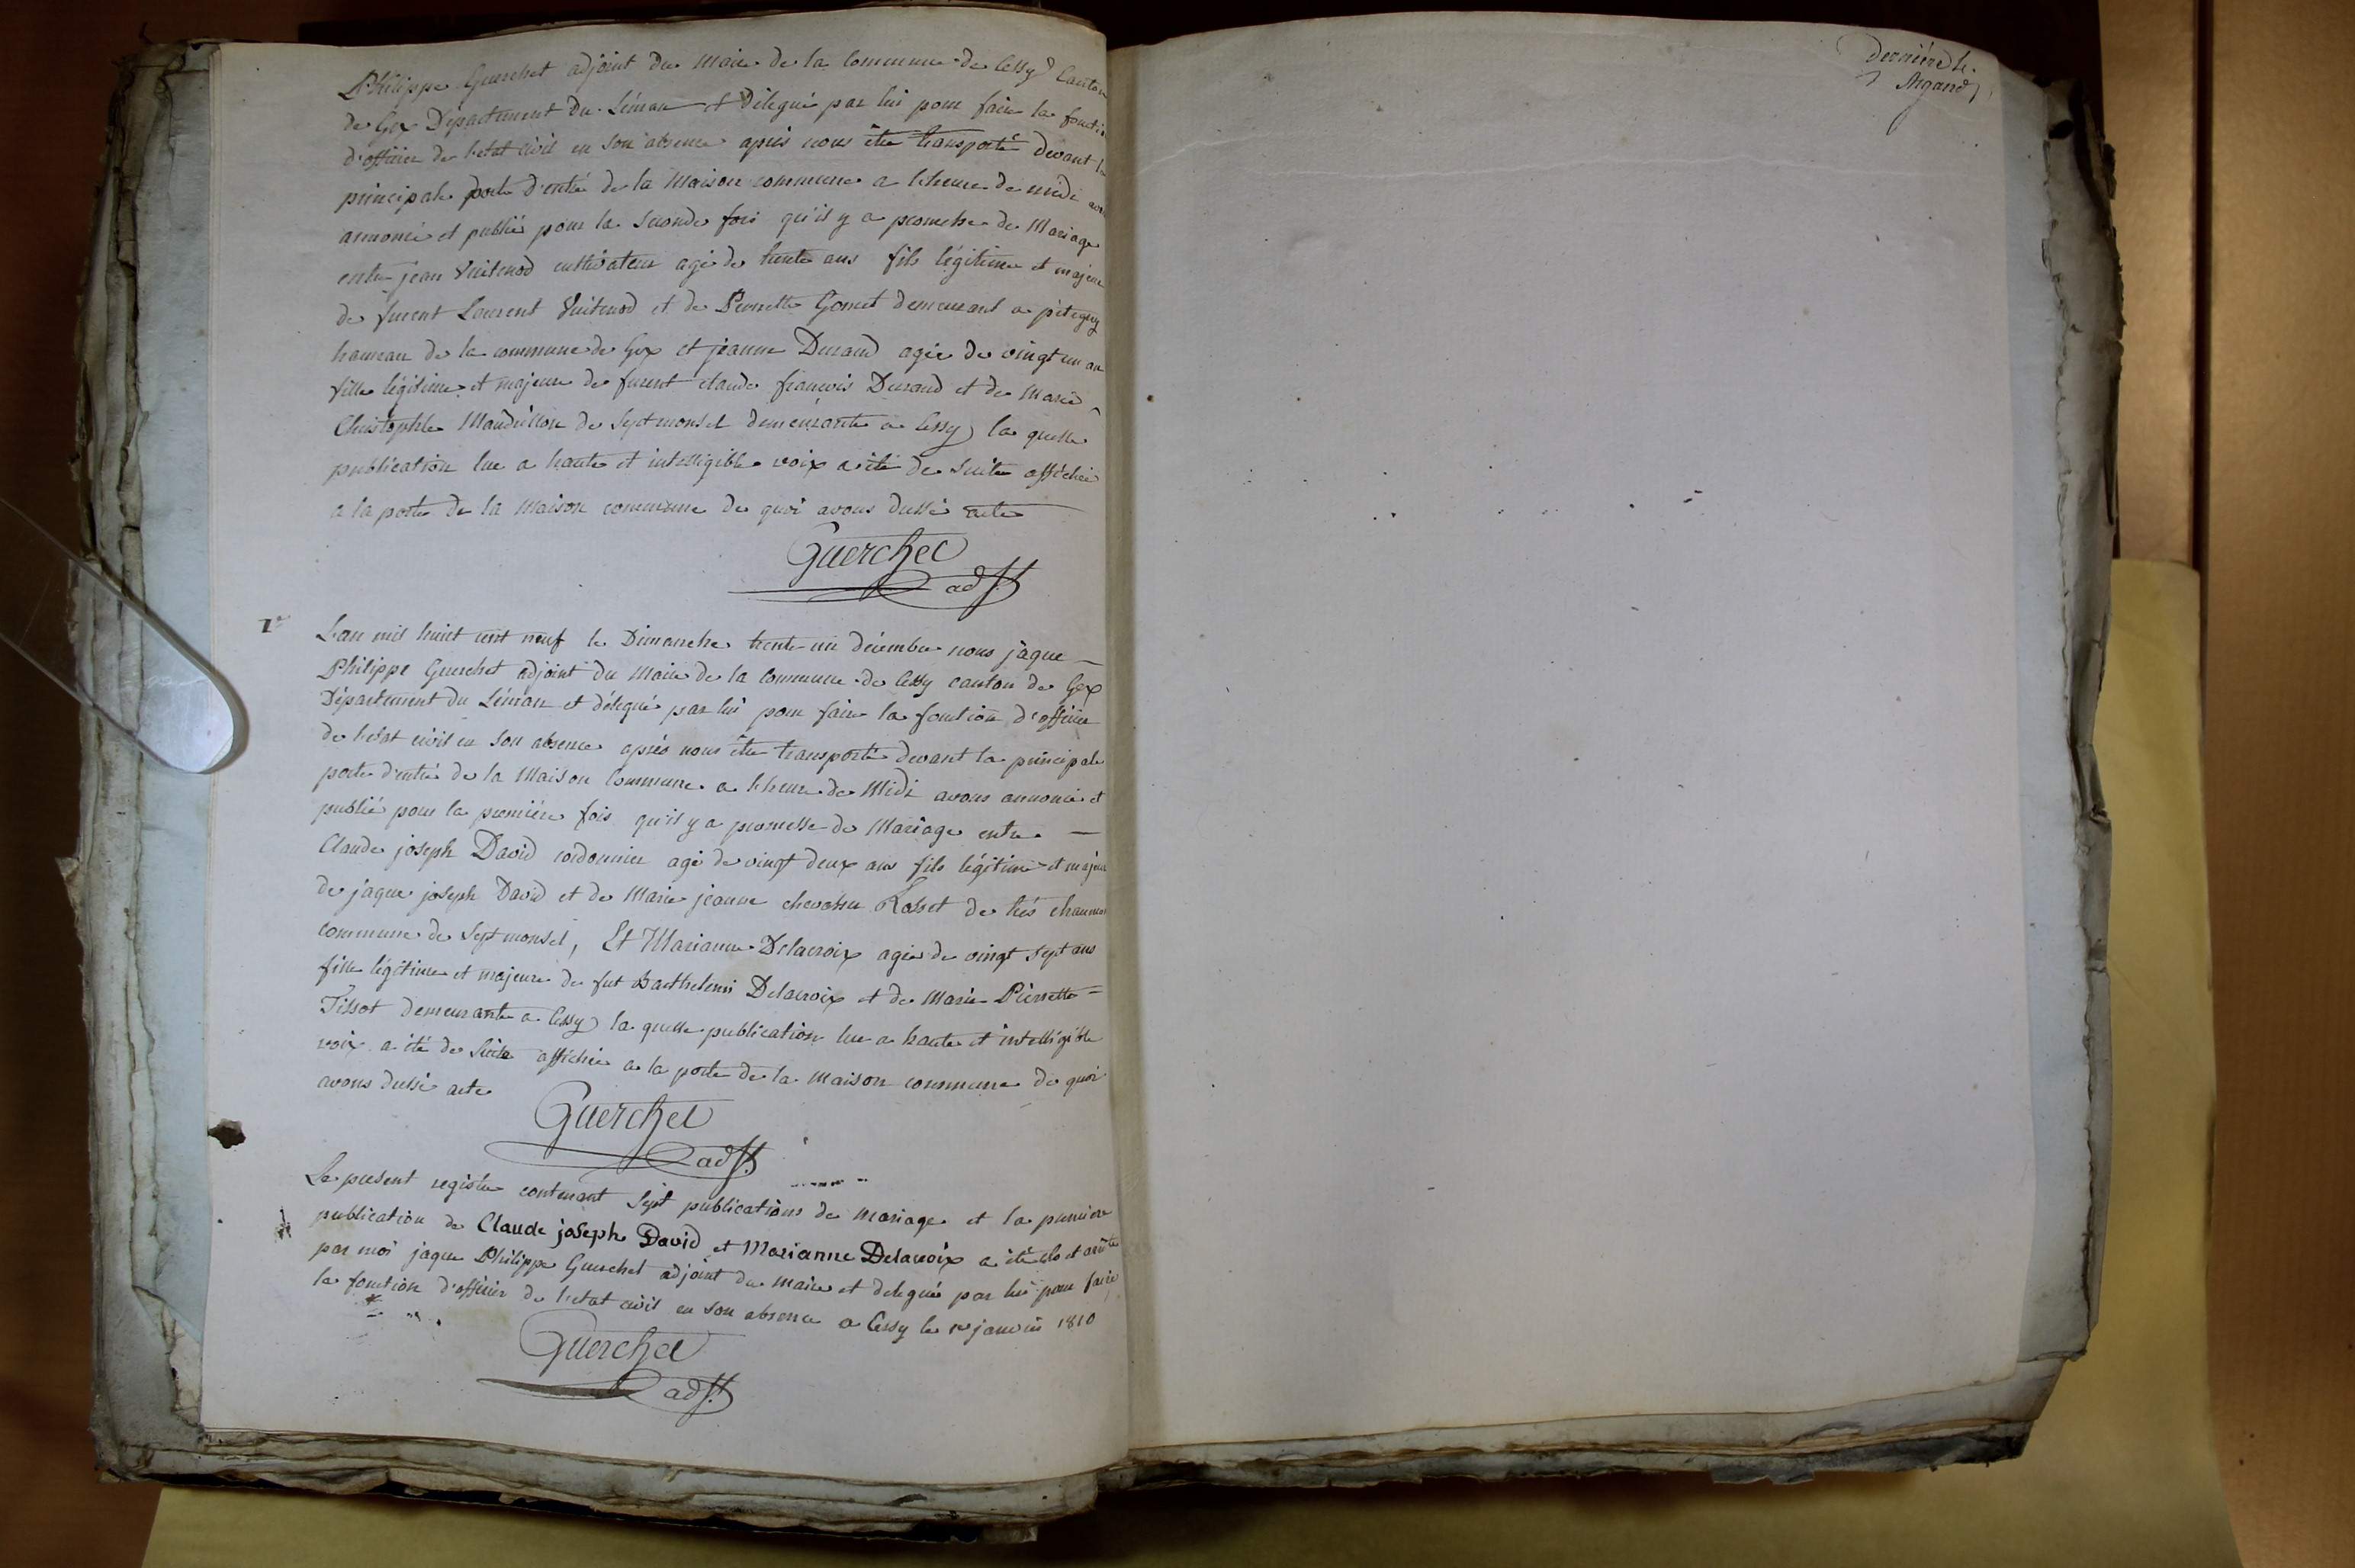 Philippe Guerchet adjoint du Maire de la Commune de Cessy Canton
de Gex Département du Léman et délegué par lui pour faire la foncti
d'officier de l'etat civil en son absence après nous être transporté devant la
principale porte d'entré de la Maison commune a l'heure de midi avo
annoncé et publié pour la seconde fois qu'il y a promesse de Mariage
entre jean Vuitenod cultivateur agé de trente ans fils légitime et majeur
de furent Laurent Vuitenod et de Pernette Gomet demeurant a pitegny
hameau de la commune de Gex et jeanne Durand agée de vingt un an
fille légitime et majeure de furent claude françois Durand et de Marie
Christophle Mandrillon de Septmonsel demeurante a Cessy, la quelle
publication lue a haute et intelligible voix a été de suite affichée
a la porte de la Maison commune de quoi avons dressé acte
Guerchet
adjt
1re
L'an mil huit cent neuf le Dimanche trente un décembre nous jaque
Philippe Guerchet adjoint du Maire de la Commune de Cessy canton de Gex
Département du Léman et délegué par lui pour faire la fonction d'officier
de l'etat civil en son absence après nous être transporté devant la principale
porte d'entré de la Maison Commune a l'heure de Midi avons annoncé et
publié pour la première fois qu'il y a promesse de Mariage entre
Claude joseph David cordonnier agé de vingt deux ans fils légitime et majeur
de jaque joseph David et de Marie jeanne chevassu Rosset de trés chaumes
commune de Septmonsel, Et Marianne Delacroix agée de vingt sept ans
fille légitime et majeure de fut Barthelemi Delacroix et de Marie Pierrette
Tissot demeurante a Cessy la quelle publication lue a haute et intelligible
voix a été de suite affichée a la porte de la Maison commune de quoi
avons dressé acte
Guerchet
adjt
Le present registre contenant sept publications de mariage et la première
publication de Claude joseph David et Marianne Delacroix a été clo et arrêté
par moi jaque Philippe Guerchet adjoint du maire et delegué par lui pour faire
la fonction d'officier de l'etat civil en son absence a Cessy le 1er janvier 1810
Guerchet
adjt
dernière
Argand